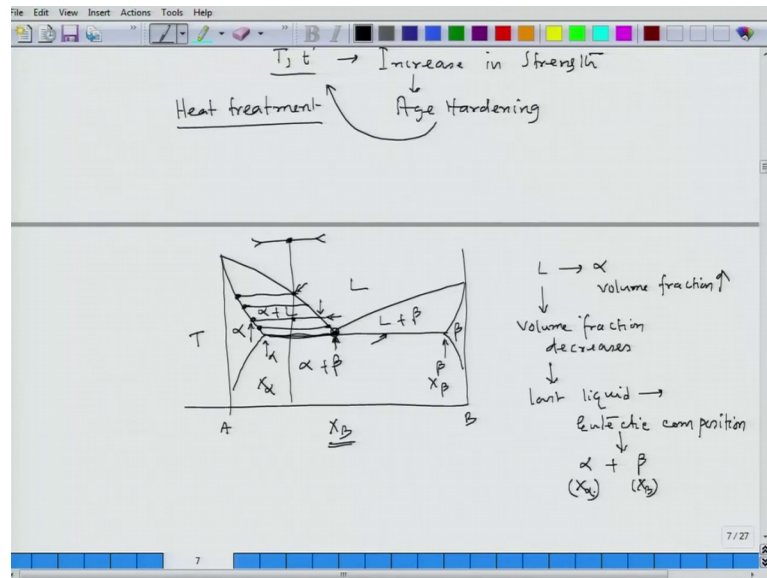 File Edit View Insert Actions Tools Help
T, t → Increase in Strength
↓
Heat treatment Age Hardening
L
α + L
L + β
α
β
T
α
α + β
β
Xα
Xβ
A
XB
B
L → α
volume fraction ↑
↓
volume fraction
decreases
↓
last liquid →
Eutectic composition
↓
α + β
(Xα) (Xβ)
7/27
7